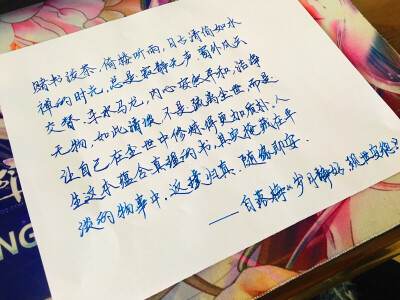 赌书泼茶,倚楼听雨,日子清简如水
禅的时光,总是寂静无声。窗外风云
交替,车水马龙,内心安然平和,洁净
无物,如此清淡,不是疏离尘世,而是
让自己在尘世中修炼得更加质朴。人
生这本蕴含真理的书,其实掩藏在平
淡的物事中,返璞归真,随缘即安。
——白落梅《岁月静好,现世安稳》
NG